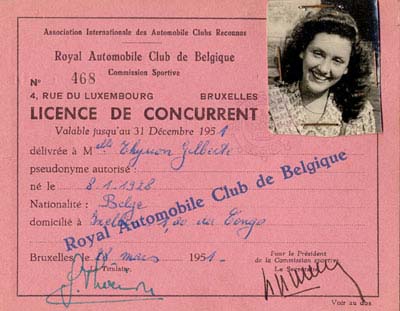 Association Internationale des Automobile Clubs Reconnus
Royal Automobile Club de Belgique
Commission Sportive
N° 468
4, RUE DU LUXEMBOURG BRUXELLES
LICENCE DE CONCURRENT
Valable jusqu'au 31 Décembre 1951
délivrée à Melle Thyrion Gilberte
pseudonyme autorisé :
né le 8-1-1928
Nationalité : Belge
domicilié à Ixelles
Royal Automobile Club de Belgique
Bruxelles 28 mars 1951.
Titulaire, Pour le Président
de la Commission sportive
Le Secrétaire
Voir au dos